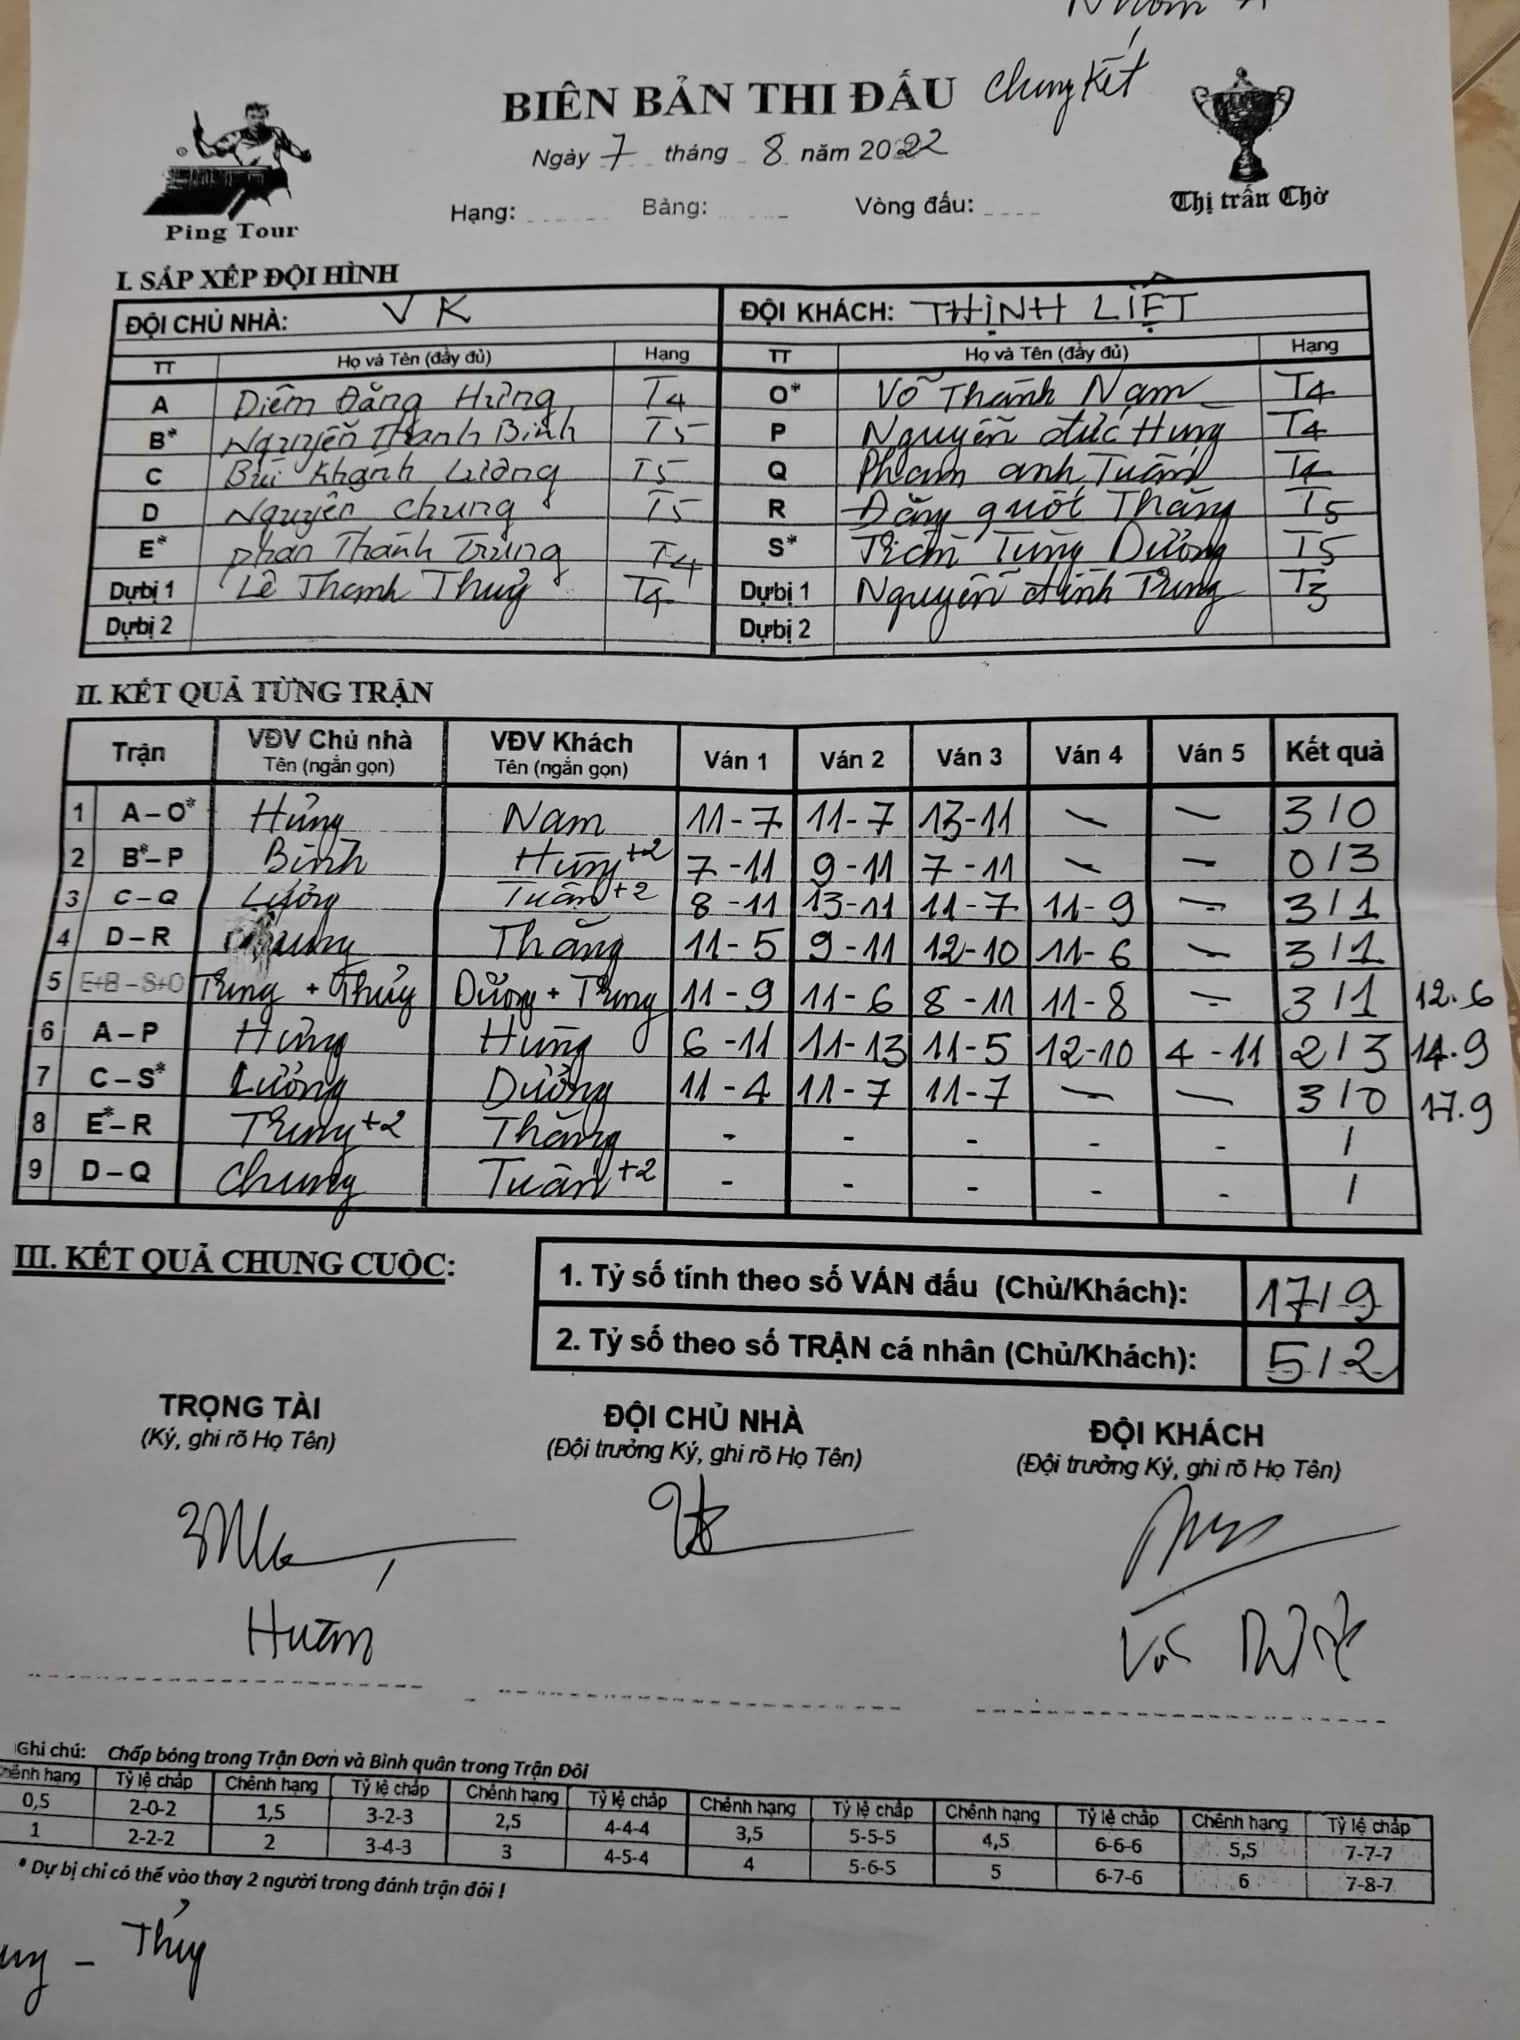 BIÊN BẢN THI ĐẤU Chung kết
Ngày 7 tháng 8 năm 2022
Hạng: Bảng: Vòng đấu:
Ping Tour
Thị trấn Chờ
I. SẮP XẾP ĐỘI HÌNH
ĐỘI CHỦ NHÀ: VK ĐỘI KHÁCH: THỊNH LIỆT
TT Họ và Tên (đầy đủ) Hạng TT Họ và Tên (đầy đủ) Hạng
A Diêm Đăng Hưng T4 O* Võ Thành Nam T4
B* Nguyễn Thanh Bình T5 P Nguyễn Đức Hùng T4
C Bùi Khánh Lương T5 Q Phạm Anh Tuấn T4
D Nguyễn Chung T5 R Đặng Quốc Thắng T5
E* Phan Thành Trung T4 S* Tùng Dương T5
Dự bị 1 Lê Thanh Thuỷ T4 Dự bị 1 Nguyễn Đình Trung T3
Dự bị 2 Dự bị 2
II. KẾT QUẢ TỪNG TRẬN
Trận VĐV Chủ nhà Tên (ngắn gọn) VĐV Khách Tên (ngắn gọn) Ván 1 Ván 2 Ván 3 Ván 4 Ván 5 Kết quả
1 A – O* Hưng Nam 11-7 11-7 13-11 — — 3/0
2 B* – P Bình Hùng+2 7-11 9-11 7-11 — — 0/3
3 C – Q Lương Tuấn+2 8-11 13-11 11-7 11-9 — 3/1
4 D – R Chung Thắng 11-5 9-11 12-10 11-6 — 3/1
5 E+B – S+O Trung + Thủy Dương + Trung 11-9 11-6 8-11 11-8 — 3/1 12.6
6 A – P Hưng Hùng 6-11 11-13 11-5 12-10 4-11 2/3 14.9
7 C – S* Lương Dương 11-4 11-7 11-7 — — 3/0 17.9
8 E* – R Trung+2 Thắng - - - - - /
9 D – Q Chung Tuấn+2 - - - - - /
III. KẾT QUẢ CHUNG CUỘC:
1. Tỷ số tính theo số VÁN đấu (Chủ/Khách): 17/9
2. Tỷ số theo số TRẬN cá nhân (Chủ/Khách): 5/2
TRỌNG TÀI ĐỘI CHỦ NHÀ ĐỘI KHÁCH
(Ký, ghi rõ Họ Tên) (Đội trưởng Ký, ghi rõ Họ Tên) (Đội trưởng Ký, ghi rõ Họ Tên)
Ghi chú: Chấp bóng trong Trận Đơn và Bình quân trong Trận Đôi
Chênh hạng Tỷ lệ chấp Chênh hạng Tỷ lệ chấp Chênh hạng Tỷ lệ chấp Chênh hạng Tỷ lệ chấp Chênh hạng Tỷ lệ chấp Chênh hạng Tỷ lệ chấp
0,5 2-0-2 1,5 3-2-3 2,5 4-4-4 3,5 5-5-5 4,5 6-6-6 5,5 7-7-7
1 2-2-2 2 3-4-3 3 4-5-4 4 5-6-5 5 6-7-6 6 7-8-7
* Dự bị chỉ có thể vào thay 2 người trong đánh trận đôi !
– Thủy